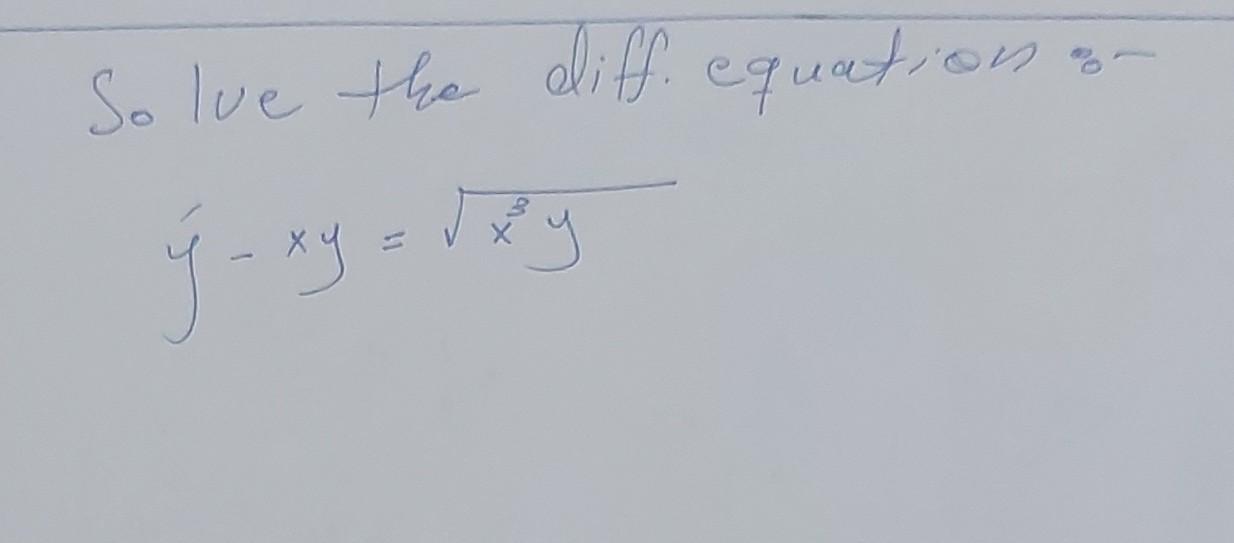 Solve the diff. equation :-
ý - xy = √(x³y)